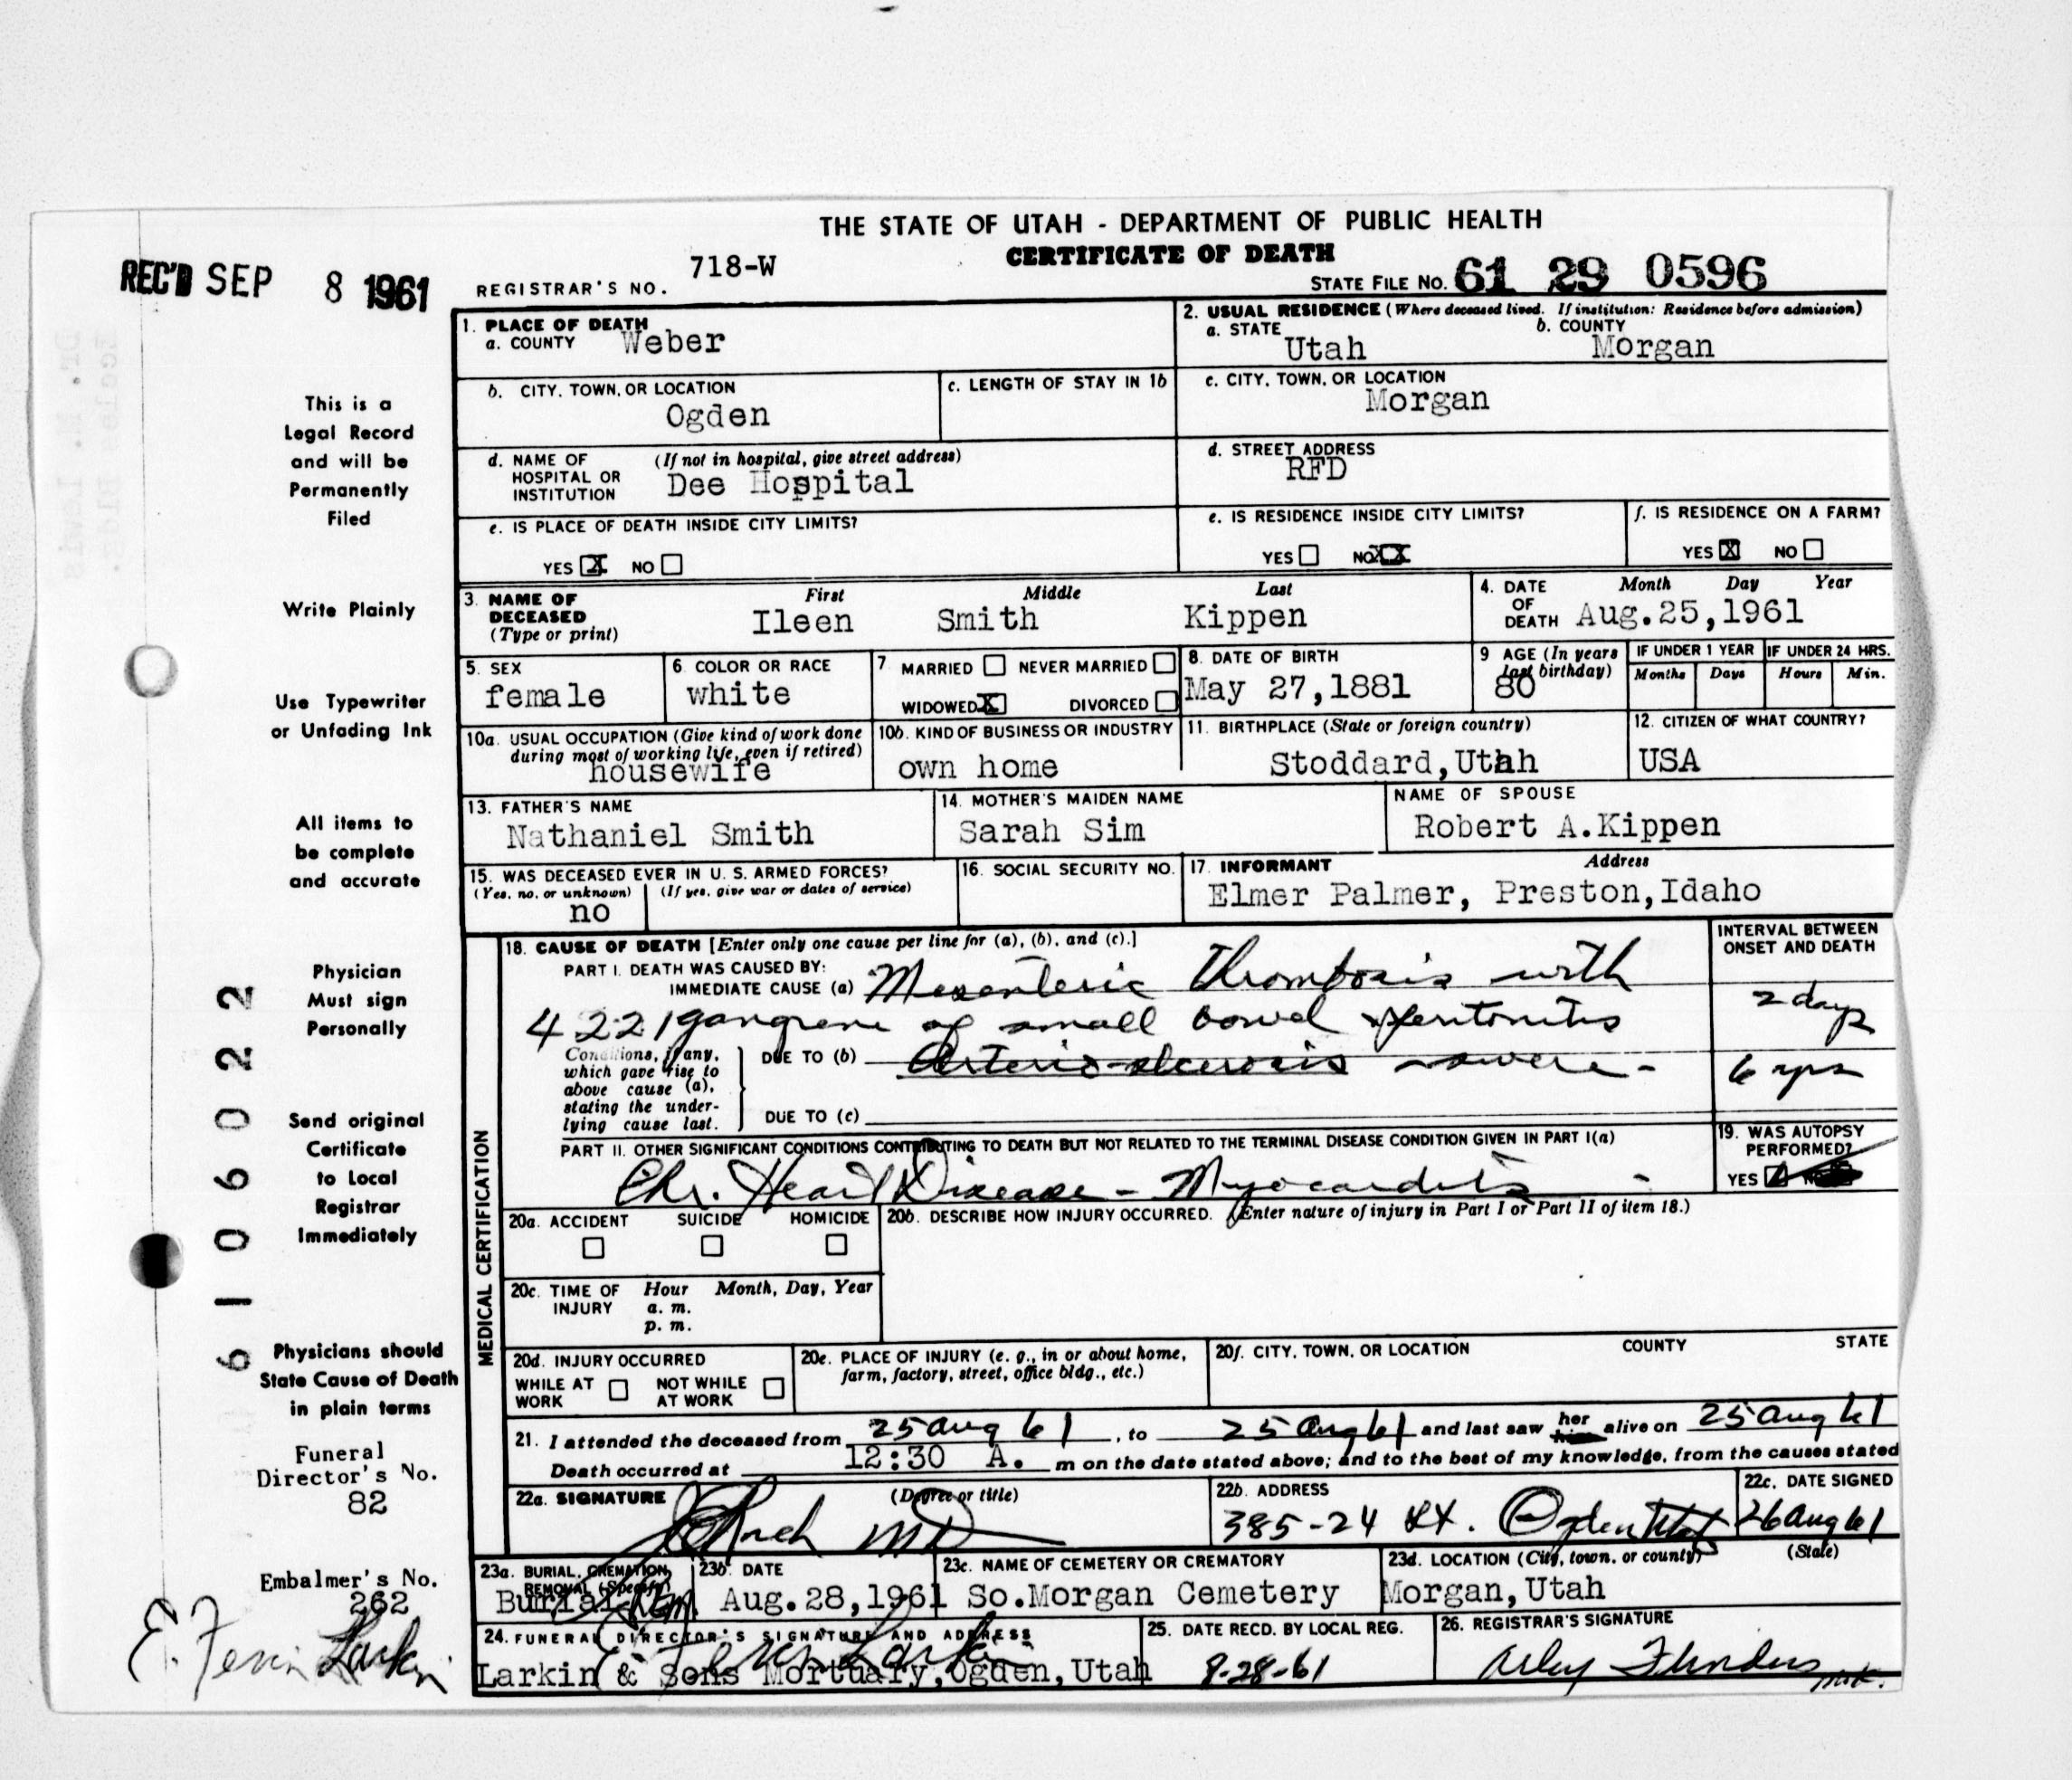 THE STATE OF UTAH - DEPARTMENT OF PUBLIC HEALTH
CERTIFICATE OF DEATH
REC'D SEP 8 1961
REGISTRAR'S NO. 718-W
STATE FILE NO. 61 29 0596
1. PLACE OF DEATH
a. COUNTY Weber
2. USUAL RESIDENCE (Where deceased lived. If institution: Residence before admission)
a. STATE Utah
b. COUNTY Morgan
b. CITY, TOWN, OR LOCATION Ogden
c. LENGTH OF STAY IN 1b
c. CITY, TOWN, OR LOCATION Morgan
d. NAME OF HOSPITAL OR INSTITUTION (If not in hospital, give street address) Dee Hospital
d. STREET ADDRESS RFD
e. IS PLACE OF DEATH INSIDE CITY LIMITS?
YES X NO
e. IS RESIDENCE INSIDE CITY LIMITS?
YES NO XX
f. IS RESIDENCE ON A FARM?
YES X NO
3. NAME OF DECEASED (Type or print)
First Middle Last
Ileen Smith Kippen
4. DATE OF DEATH Month Day Year
Aug.25,1961
5. SEX female
6. COLOR OR RACE white
7. MARRIED NEVER MARRIED
WIDOWED X DIVORCED
8. DATE OF BIRTH May 27,1881
9 AGE (In years last birthday) 80
IF UNDER 1 YEAR Months Days
IF UNDER 24 HRS. Hours Min.
10a. USUAL OCCUPATION (Give kind of work done during most of working life, even if retired) housewife
10b. KIND OF BUSINESS OR INDUSTRY own home
11. BIRTHPLACE (State or foreign country) Stoddard,Utah
12. CITIZEN OF WHAT COUNTRY? USA
13. FATHER'S NAME Nathaniel Smith
14. MOTHER'S MAIDEN NAME Sarah Sim
NAME OF SPOUSE Robert A.Kippen
15. WAS DECEASED EVER IN U. S. ARMED FORCES?
(Yes, no, or unknown) (If yes, give war or dates of service)
no
16. SOCIAL SECURITY NO.
17. INFORMANT Address
Elmer Palmer, Preston,Idaho
MEDICAL CERTIFICATION
18. CAUSE OF DEATH [Enter only one cause per line for (a), (b), and (c).]
INTERVAL BETWEEN ONSET AND DEATH
PART I. DEATH WAS CAUSED BY:
IMMEDIATE CAUSE (a) Mesenteric Thrombosis with
4221 gangrene of small bowel & peritonitis 2 days
Conditions, if any, which gave rise to above cause (a), stating the underlying cause last.
DUE TO (b) Arterio-sclerosis severe - 6 yrs
DUE TO (c)
PART II. OTHER SIGNIFICANT CONDITIONS CONTRIBUTING TO DEATH BUT NOT RELATED TO THE TERMINAL DISEASE CONDITION GIVEN IN PART I(a)
Chr. Heart Disease - Myocarditis -
19. WAS AUTOPSY PERFORMED?
YES
20a. ACCIDENT SUICIDE HOMICIDE
20b. DESCRIBE HOW INJURY OCCURRED. (Enter nature of injury in Part I or Part II of item 18.)
20c. TIME OF INJURY Hour Month, Day, Year
a. m.
p. m.
20d. INJURY OCCURRED
WHILE AT WORK NOT WHILE AT WORK
20e. PLACE OF INJURY (e. g., in or about home, farm, factory, street, office bldg., etc.)
20f. CITY, TOWN, OR LOCATION COUNTY STATE
21. I attended the deceased from 25 Aug 61, to 25 Aug 61 and last saw her him alive on 25 Aug 61
Death occurred at 12:30 A. m on the date stated above; and to the best of my knowledge, from the causes stated
22a. SIGNATURE (Degree or title) MD
22b. ADDRESS 385-24 St. Ogden Utah
22c. DATE SIGNED 26 Aug 61
23a. BURIAL, CREMATION, REMOVAL (Specify) Burial
23b. DATE Aug.28,1961
23c. NAME OF CEMETERY OR CREMATORY So.Morgan Cemetery
23d. LOCATION (City, town, or county) (State)
Morgan,Utah
24. FUNERAL DIRECTOR'S SIGNATURE AND ADDRESS
E. Ferrin Larkin
Larkin & Sons Mortuary,Ogden,Utah
25. DATE RECD. BY LOCAL REG. 8-28-61
26. REGISTRAR'S SIGNATURE Arley Flinders
This is a
Legal Record
and will be
Permanently
Filed
Write Plainly
Use Typewriter
or Unfading Ink
All items to
be complete
and accurate
Physician
Must sign
Personally
Send original
Certificate
to Local
Registrar
Immediately
Physicians should
State Cause of Death
in plain terms
Funeral
Director's No.
82
Embalmer's No.
262
E. Ferrin Larkin
6106022
Dr. M. Lewis
Eccles Bldg.